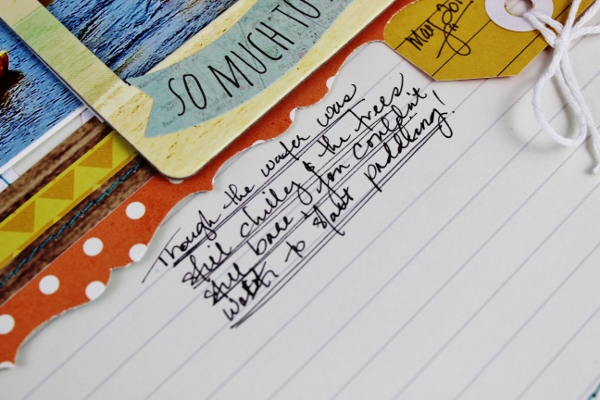 SO MUCH TO
May 201
Though the water was
still chilley & the trees
still bare, Jon couldn't
wait to start paddling!